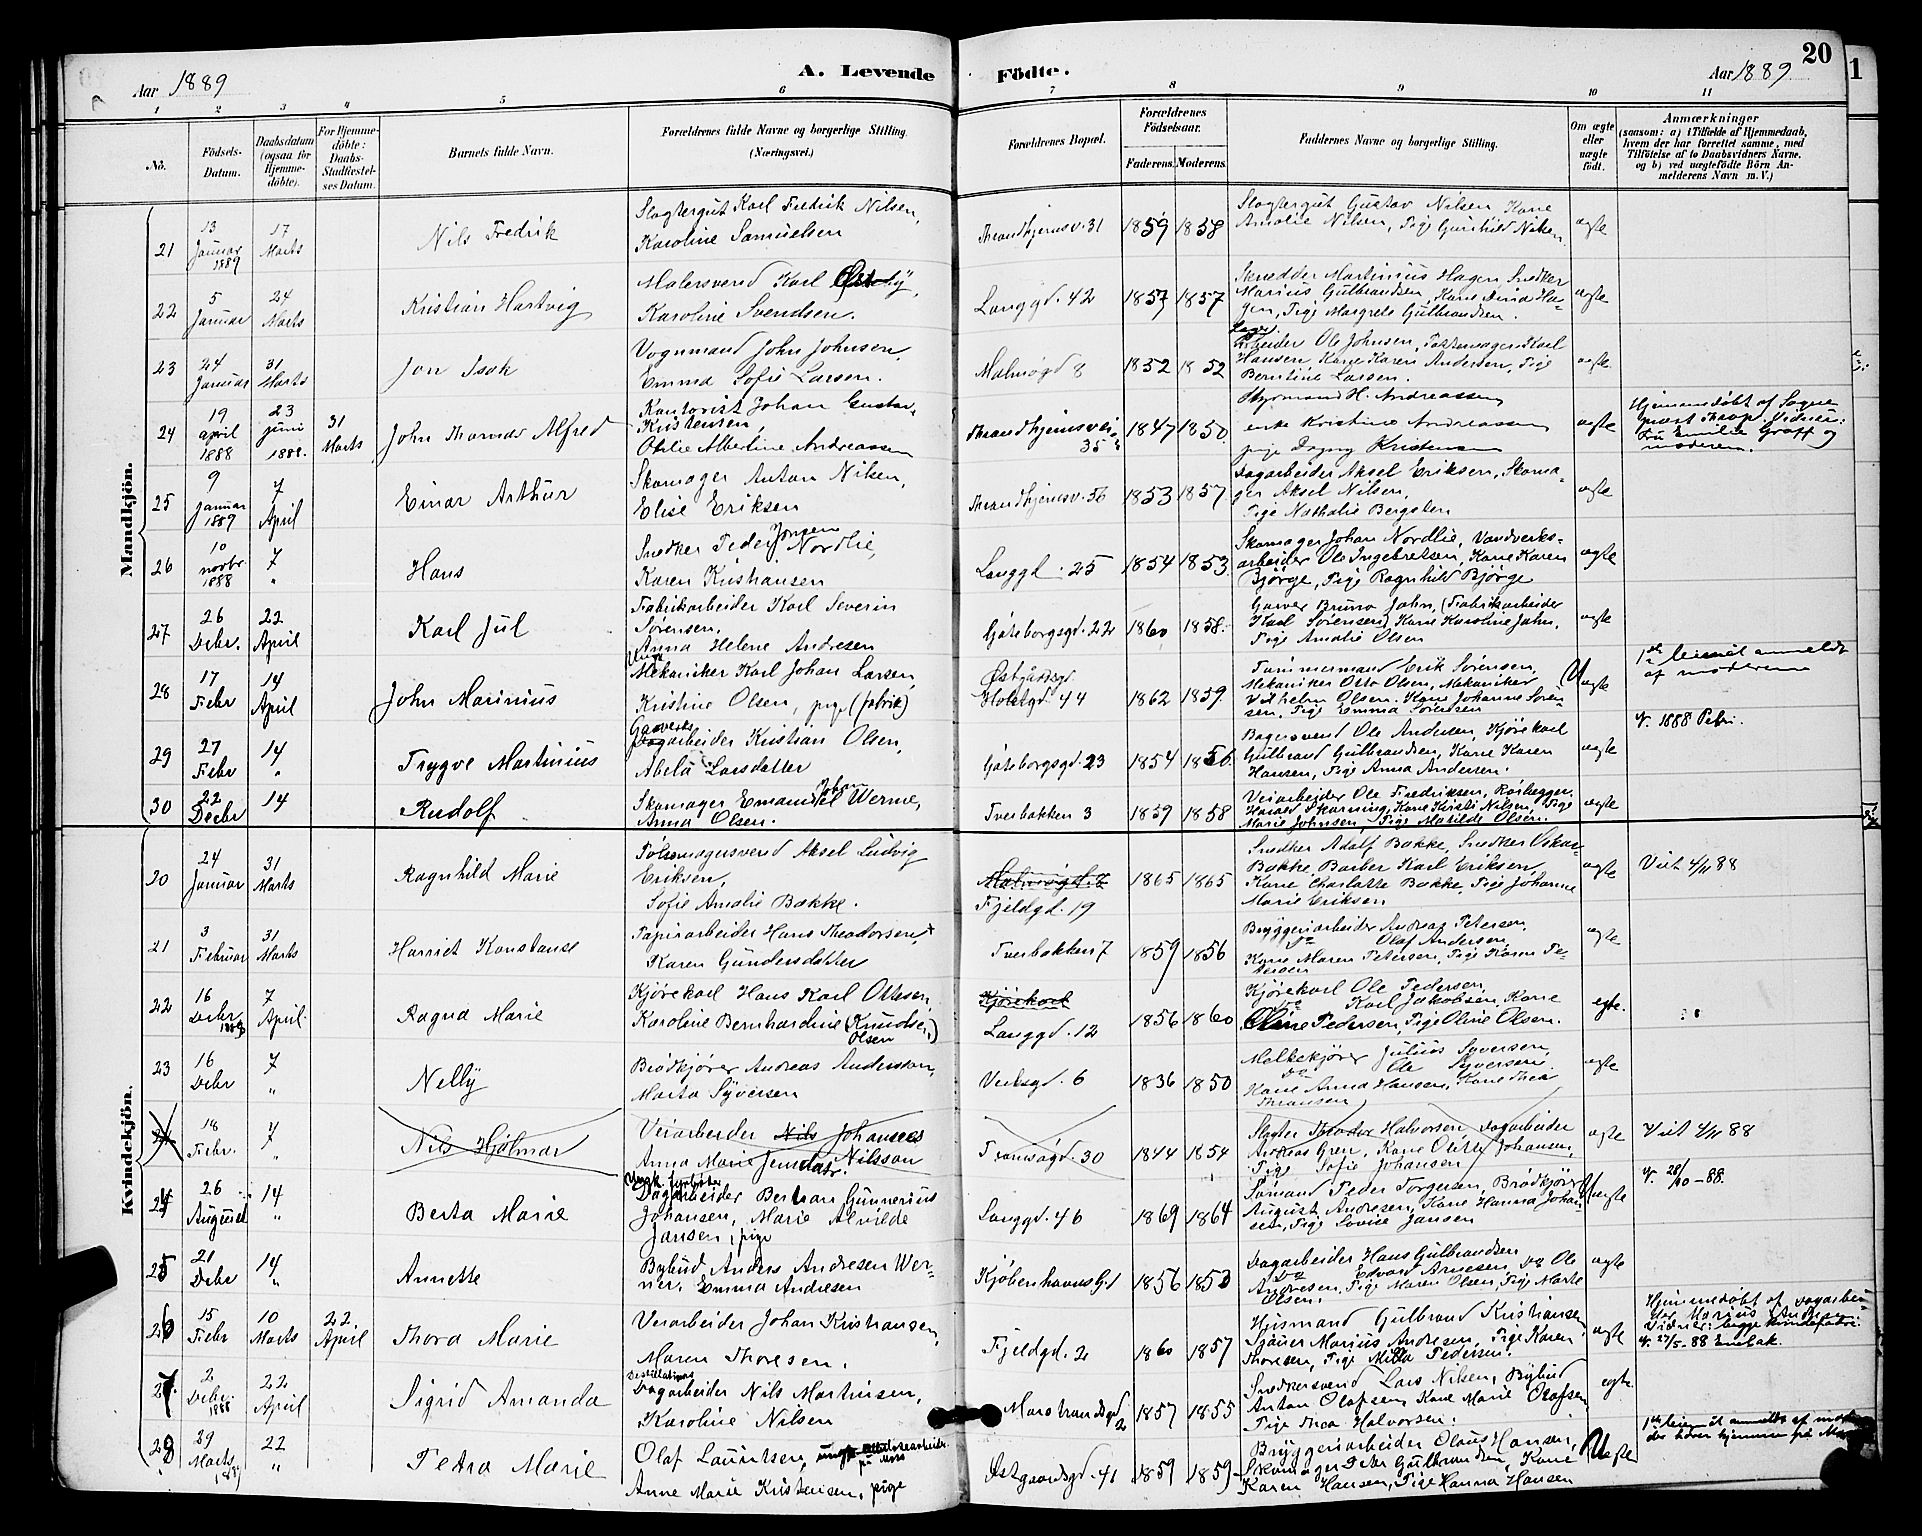 20
Aar 1889
A. Levende Födte.
Aar 1889
1 2 3 4 5 6 7 8 9 10 11
No.
Födsels-Datum.
Daabsdatum (ogsaa for Hjemmedöbte).
For Hjemmedöbte: Daabs-Stadfæstelses Datum.
Barnets fulde Navn.
Forældrenes fulde Navne og borgerlige Stilling.
(Næringsvei.)
Forældrenes Bopæl.
Forældrenes Födselsaar.
Faderens. Moderens.
Faddernes Navne og borgerlige Stilling.
Om ægte eller uægte födt.
Anmærkninger
(saasom: a) i Tilfælde af Hjemmedaab, hvem der har forrettet samme, med Tilföielse af to Daabsvidners Navne, og b) ved uægtefödte Börn Anmelderens Navn m. V.)
Mandkjön.
21
13 Januar 1889
17 Marts
Nils Fredrik
Slagtergut Karl Fredrik Nilsen,
Karoline Samuelsen
Throndhjemsv. 31
1859 1858
Slagtergut Gustav Nilsen Kone
Amalie Nilsen, Pige Gunhild Nilsen
ægte
22
5 Januar
24 Marts
Kristian Hartvig
Malersvend Karl Østby,
Karoline Svendsen.
Langgd. 42
1857 1857
Skrædder Martinius Hagen Snedker
Marius Gulbrandsen, Kone Dina Ha-
gen, Pige Margrete Gulbrandsen.
ægte
23
24 Januar
31 Marts
Jon Isak
Vognmand John Johnsen,
Emma Sofie Larsen.
Malmøgd 8
1852 1852
Arbeider Ole Johnsen, Pottemager Karl
Hansen, Kone Karen Andersen, Pige
Berntine Larsen.
ægte
24
19 april 1888
23 juni 1888.
31 Marts
John Thomas Alfred
Kontorist Johan Gustav
Kristensen,
Otilie Albertine Andreassen
Throndhjemsvei 35
1847 1850
Styrmand H. Andreassen
enke Kristine Andreassen
pige Dagny Kristensen
ægte
Hjemmedøbt af Sogne
prest Thrap. Vidner:
Fru Emilie Graff og
moderen.
25
9 Januar 1889
7 April
Einar Arthur
Skomager Anton Nilsen,
Elise Eriksen
Throndhjemsv. 56
1853 1857
Dagarbeider Aksel Eriksen, Skoma-
ger Aksel Nilsen,
Pige Nathalie Bergsten
ægte
26
10 novbr 1888
7 "
Hans
Snedker Peder Jørgen Nordlie,
Karen Kristiansen
Langgd. 25
1854 1853
Skomager Johan Nordlie, Vandverks-
arbeider Ole Ingebretsen, Kone Karen
Bjørge, Pige Ragnhild Bjørge
ægte
27
26 Debr.
22 April
Karl Jul
Fabrikarbeider Karl Severin
Sørensen,
Anna Helene Andresen
Gøteborgsgd. 22
1860 1858.
Garver Bruno Jahn, Fabrikarbeider
Karl Sørensen, Kone Karoline Jahn,
Pige Amalie Olsen
ægte
28
17 Febr
14 April
John Marinius
Ungk. Mekaniker Karl Johan Larsen,
Kristine Olsen, pige (fabrik)
Østgårdsgd.
Holstgd. 44
1862 1859.
Tømmermand Erik Sørensen,
Mekaniker Otto Olsen, Mekaniker
Vilhelm Olsen. Kone Johanne Søren-
sen, Pige Emma Sørensen
Uægte
1ste leiermål anmeldt
af moderen
29
27 Febr
14 "
Trygve Martinius
Gasverksarbeider Kristian Olsen,
Abela Larsdatter
Gøteborgsgd. 23
1854 1856.
Bagersvend Ole Andersen, Kjørekarl
Gulbrand Gulbrandsen, Kone Karen
Hansen, Pige Anna Andersen.
ægte
v. 1888 Petri.
30
22 Decbr
14
Rudolf
Skomager Emanuel Johan Werme,
Anna Olsen.
Tverbakken 3
1859 1858
Veiarbeider Ole Fredriksen, Rørlægger
Harald Skarning, Kone Kirsti Nilsen, Pige
Marie Johnsen, Pige Matilde Olsen.
ægte
Kvindekjön.
20
24 Januar
31 Marts
Ragnhild Marie
Pølsemagersvend Aksel Ludvig
Eriksen,
Sofie Amalie Bakke.
Malmøgd. 8
Fjeldgd. 19
1865 1865
Snedker Adolf Bakke, Snedker Oskar
Bakke, Barber Karl Eriksen,
Kone Charlotte Bakke, Pige Johanne
Marie Eriksen
ægte
Viet 4/11 88
21
3 Februar
31 Marts
Harriet Konstanse
Papirarbeider Hans Theodorsen,
Karen Gundersdatter
Tverbakken 7
1859 1856
Bryggeriarbeider Andreas Petersen,
Do Olaf Andersen,
Kone Maren Petersen, Pige Karen Pe-
tersen
ægte
22
16 Debr 1888
7 April
Ragna Marie
Kjørekarl Hans Karl Ottesen,
Karoline Bernhardine (Knudsen) Olsen
Kjørekarl
Langgd. 12
1856 1860
Kjørekarl Ole Pedersen,
Do Karl Jakobsen, Kone
Oline Pedersen, Pige Oline Olsen.
egte.
23
16 Debr
7 "
Nelly
Brødkjører Andreas Anderson,
Marta Syversen
Verksgd. 6
1836 1850
Melkekjører Julius Syversen,
Do Ole Syversen
Kone Anna Hansen, Kone Thea
Fransen
ægte
24
18 Febr.
7 "
Nils Hjalmar
Veiarbeider Nils Johansens
Anna Marie Jensdatr. Nilsson
Tromsøgd. 30
1844 1854
Slagter Theodor Halvorsen, Dagarbeider
Andreas Gren, Kone Olette Johansen,
Pige Sofie Johansen
ægte
Viet 4/11 88
24
26 August
14 "
Berta Marie
Ungk. fyrbøder
Dagarbeider Bertran Gunnerius
Johansen, Marie Alvilde
Jansen, pige
Langgd. 46
1869 1864
Sømand Peder Torgersen, Brødkjører
August Andresen, Kone Hanna Johan-
sen, Pige Lovise Jansen
Uægte
v. 28/10 - 88.
25
21 Debr
14 "
Annette
Bybud Anders Andresen Wer-
ner. Emma Andresen
Kjøbenhavnsgd 1
1856 1853
Dagarbeider Hans Gulbrandsen
Do Edvard Arnesen, Do Ole
Andresen, Pige Maren Olsen, Pige Marte
Olsen.
ægte
26
15 Febr
10 Marts
22 April
Thora Marie
Veiarbeider Johan Kristiansen,
Maren Thoresen.
Fjeldgd. 2
1860 1857
Huismand Gulbrand Kristiansen
Sjauer Marius Andresen, Pige Karen
Thoresen, Pige Milla Pedersen.
ægte
Hjemmedøbt af Dagarbei-
der Marius Andresen
Vidner: begge
v. 27/5 - 88 Enebak.
27.
2 Debr. 1888
22 April
Sigrid Amanda
Destillations
Dagarbeider Nils Martinsen,
Karoline Nilsen
Marstrandsgd 2
1857 1855
Snedkersvend Lars Nilsen, Bybud
Anton Olafsen, Kone Marie Olafsen
Pige Thea Halvorsen.
ægte.
28
29 Marts 1889
22 "
Petra Marie
Olaf Lauritsen, ungk.
på Moss
Anne Marie Kristensen, pige
Østgaardsgd. 41
1859 1859
Bryggeriarbeider Olaus Hansen,
Skomager Peter Gulbrandsen, Kone
Karen Hansen, Pige Hanna Hansen
Uægte
1ste leiermål anmeldt af mode
der hører hjemme på